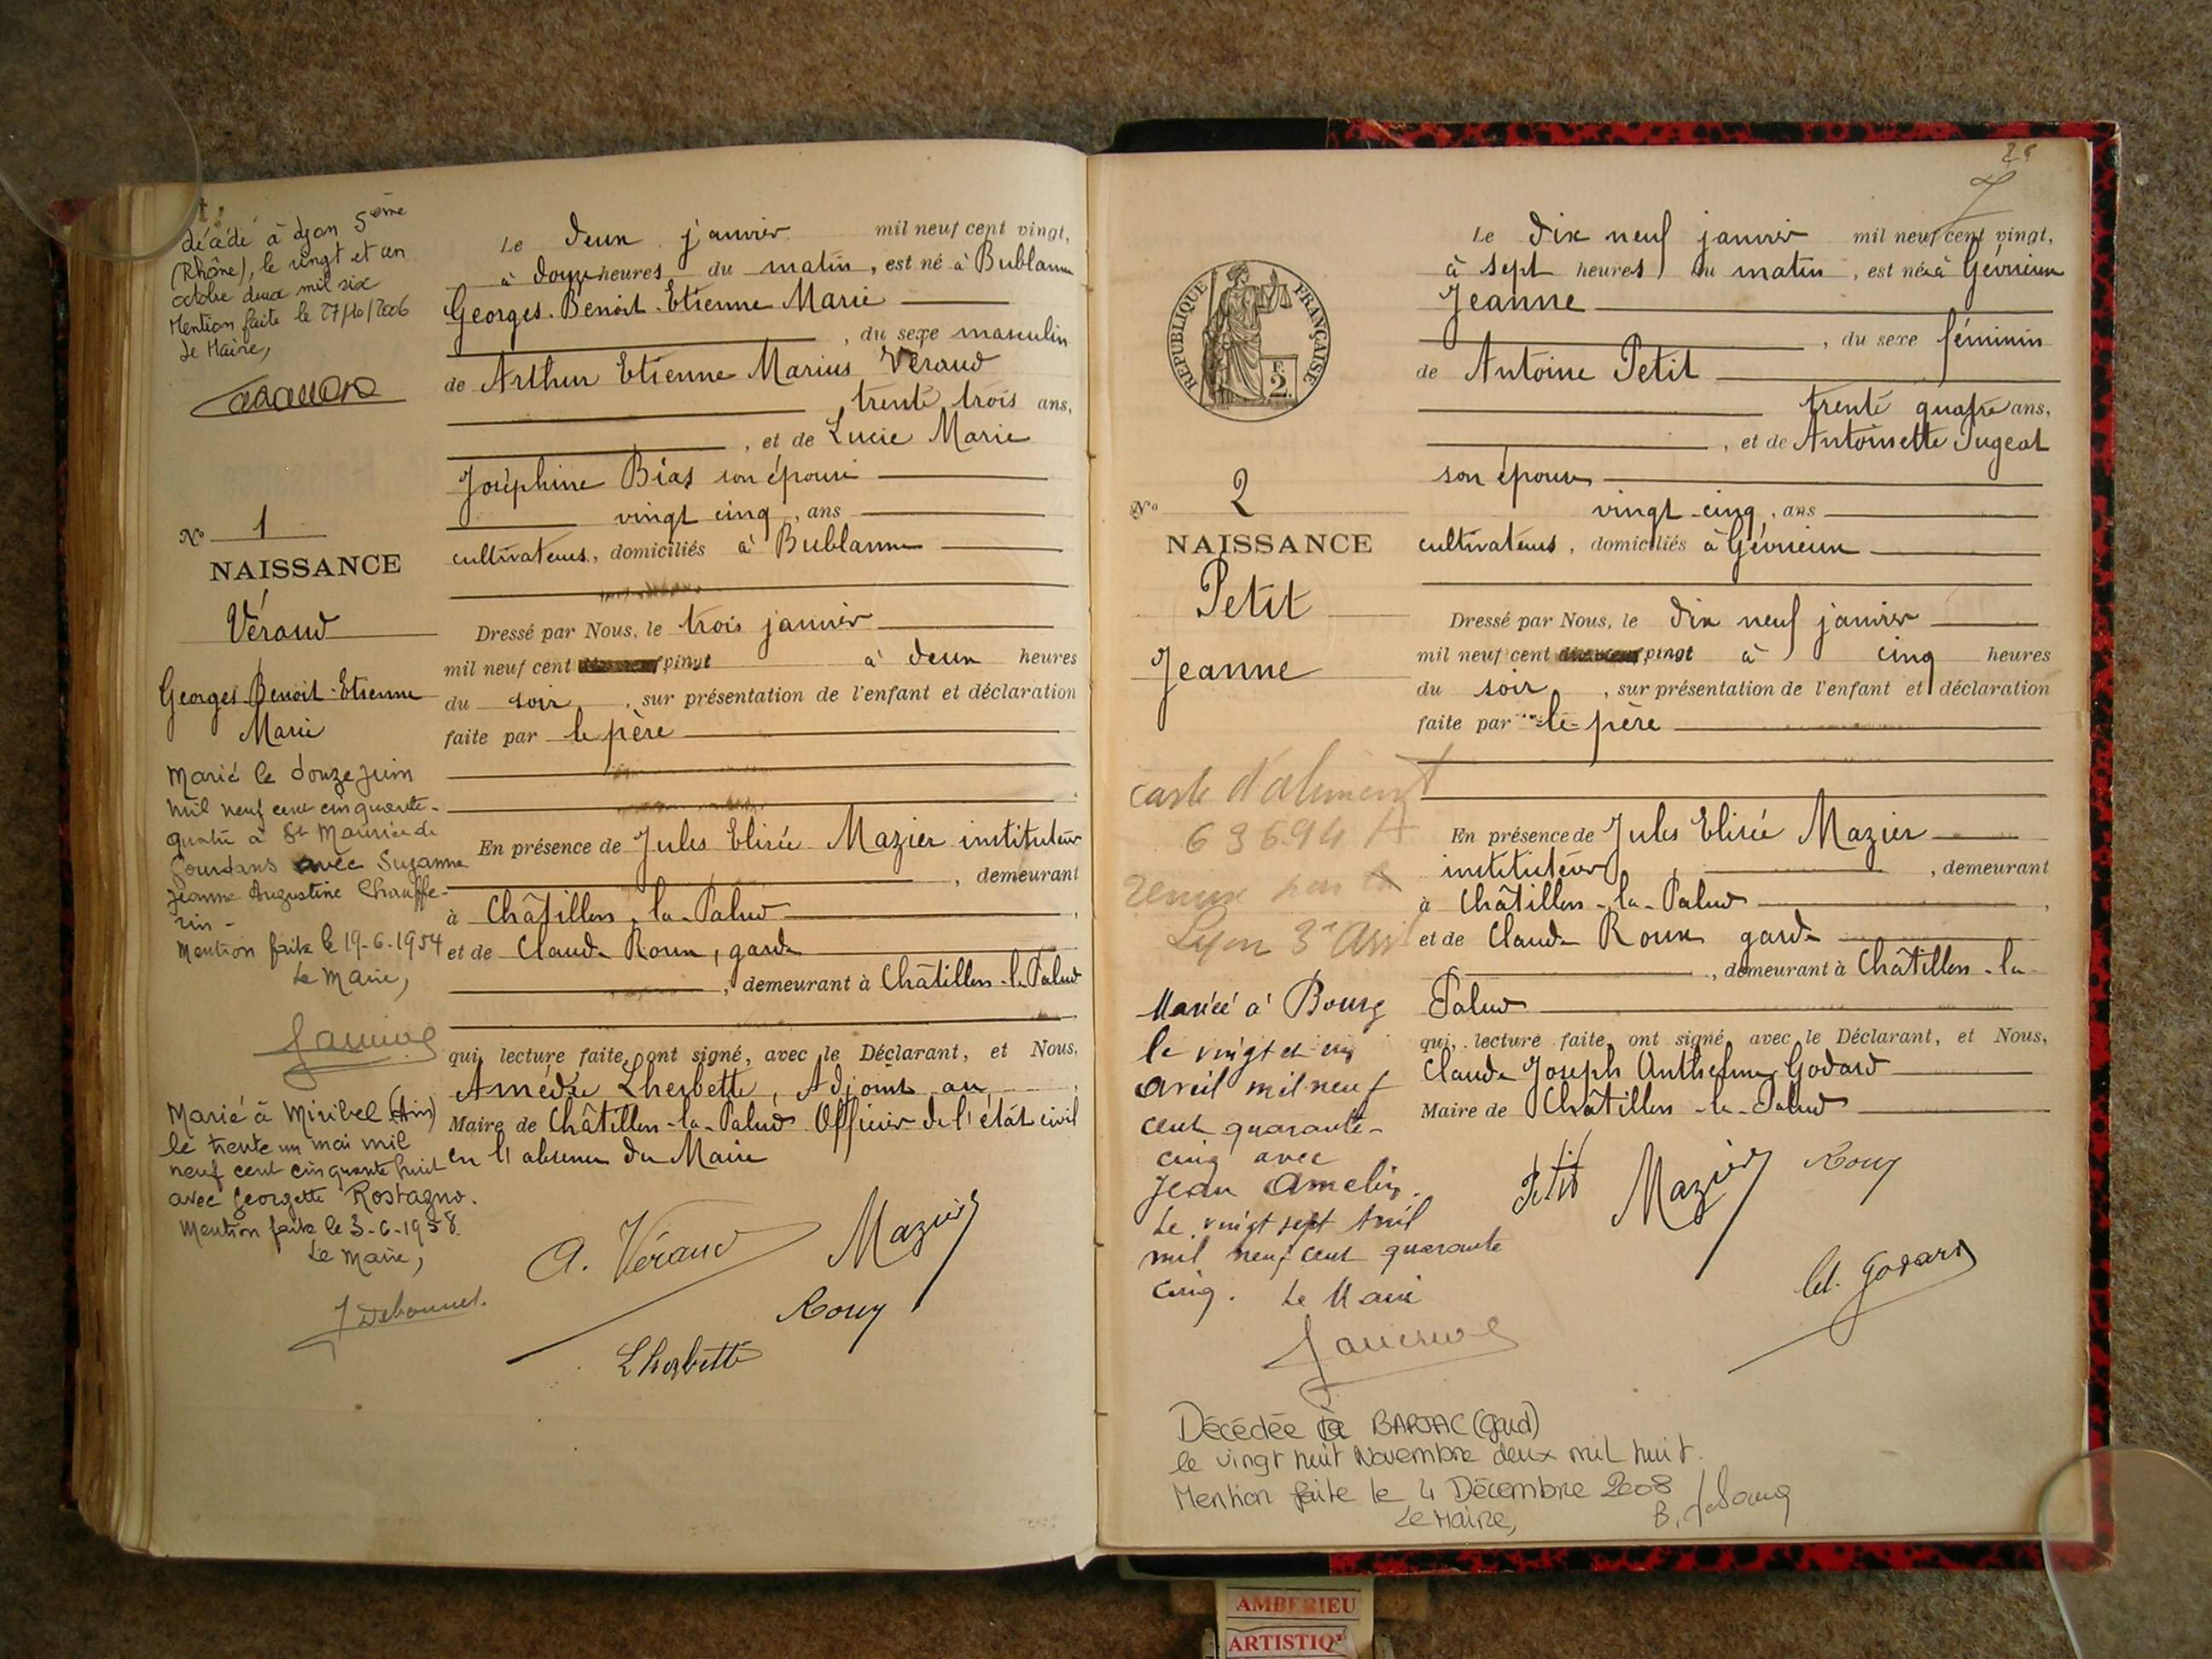 décédé à Lyon 5ème
(Rhône), le vingt et un
octobre deux mil six
Mention faite le 27/10/2006
Le Maire,
N° 1
NAISSANCE
Véraud
Georges Benoit-Etienne
Marie
Marié le douze juin
mil neuf cent cinquante-
quatre à St Maurice de
Gourdans avec Suzanne
Jeanne Augustine Chauffe-
rin -
Mention faite le 19-6-1954
Le Maire,
Marié à Miribel (Ain)
le trente un mai mil
neuf cent cinquante huit
avec Georgette Rostagno.
Mention faite le 3-6-1958.
Le Maire,
Le deux janvier mil neuf cent vingt,
à douze heures du matin, est né à Bublanne
Georges-Benoit-Etienne Marie
, du sexe masculin
de Arthur Etienne Marius Véraud
, trente trois ans,
, et de Lucie Marie
Joséphine Bias son épouse
vingt cinq, ans
cultivateurs, domiciliés à Bublanne
Dressé par Nous, le trois janvier
mil neuf cent vingt à deux heures
du soir, sur présentation de l'enfant et déclaration
faite par le père
En présence de Jules Elisée Mazier instituteur
, demeurant
à Châtillon-la-Palud,
et de Claude Roux, garde
, demeurant à Châtillon-la-Palud
qui, lecture faite, ont signé, avec le Déclarant, et Nous,
Amédée Lherbette, Adjoint au
Maire de Châtillon-la-Palud Officier de l'état civil
en l'absence du Maire
A. Véraud Mazier
Roux
Lherbette
25
7
RÉPUBLIQUE FRANÇAISE
F.
2.
N° 2
NAISSANCE
Petit
Jeanne
carte d'aliment
63594 A
Lyon 3e Arr
Mariée à Bourg
le vingt et un
avril mil neuf
cent quarante-
cinq avec
Jean Amelin.
Le vingt sept Avril
mil neuf cent quarante
cinq. Le Maire
Le dix neuf janvier mil neuf cent vingt,
à sept heures du matin, est née à Gévrieux
Jeanne
, du sexe féminin
de Antoine Petit
trente quatre ans,
, et de Antoinette Pugeat
son épouse
vingt-cinq, ans
cultivateurs, domiciliés à Gévrieux
Dressé par Nous, le dix neuf janvier
mil neuf cent vingt à cinq heures
du soir, sur présentation de l'enfant et déclaration
faite par le père
En présence de Jules Elisée Mazier
instituteur, demeurant
à Châtillon-la-Palud,
et de Claude Roux garde
, demeurant à Châtillon-la-
Palud
qui, lecture faite, ont signé avec le Déclarant, et Nous,
Claude Joseph Anthelme Godard
Maire de Châtillon-la-Palud
Petit Mazier Roux
Cl. Godard
Décédée à BARJAC (Gard)
le vingt huit Novembre deux mil huit.
Mention faite le 4 Décembre 2008
Le Maire,
AMBERIEU
ARTISTIQ